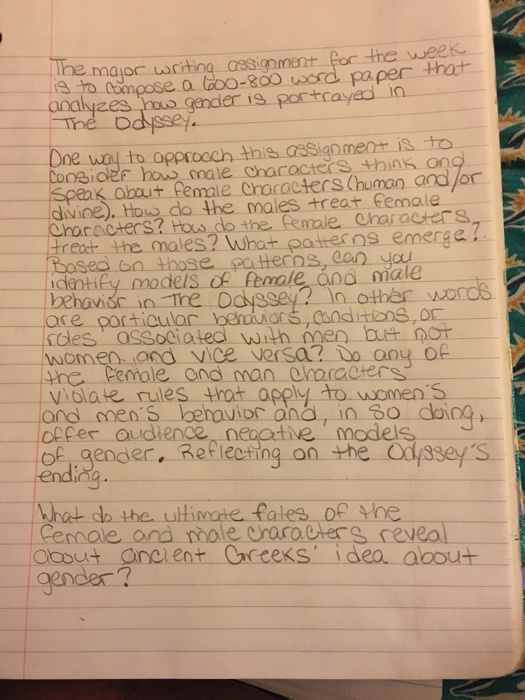 The major writing assignment for the week
is to compose a 600-800 word paper that
analyzes how gender is portrayed in
The Odyssey.
One way to approach this assignment is to
consider how male characters think and
speak about female characters (human and/or
divine). How do the males treat female
characters? How do the female characters
treat the males? What patterns emerge?
Based on those patterns, can you
identify models of female and male
behavior in The Odyssey? In other words
are particular behaviors, conditions, or
roles associated with men but not
women and vice versa? Do any of
the female and man characters
violate rules that apply to women's
and men's behavior and, in so doing,
offer audience negative models
of gender. Reflecting on the Odyssey's
ending.
What do the ultimate fates of the
female and male characters reveal
about ancient Greeks' idea about
gender?